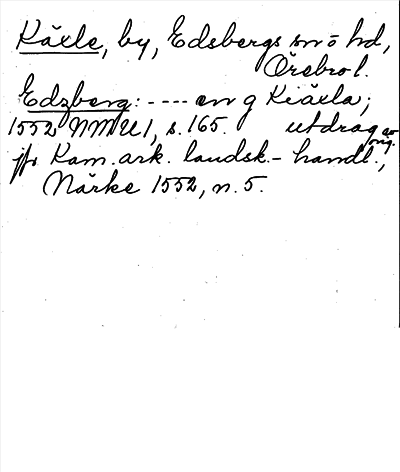 Käxle, by, Edsbergs sn ō hd,
Örebro l.
Edzberg: ---- en g Kiäxla;
1552 NMU1, s. 165. utdrag av orig.
jfr Kam. ark. landsk.- handl.,
Närke 1552, n. 5.